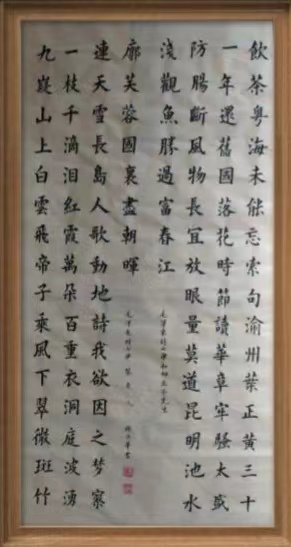 飲茶粵海未能忘索句渝州葉正黃三十
一年還舊國落花時節讀華章牢騷太盛
防腸斷風物長宜放眼量莫道昆明池水
淺觀魚勝過富春江
毛澤東詩七律和柳亞子先生
九嶷山上白雲飛帝子乘風下翠微斑竹
一枝千滴泪紅霞萬朵百重衣洞庭波湧
連天雪長島人歌動地詩我欲因之梦寥
廓芙蓉國裏盡朝暉
毛澤東詩七律答友人